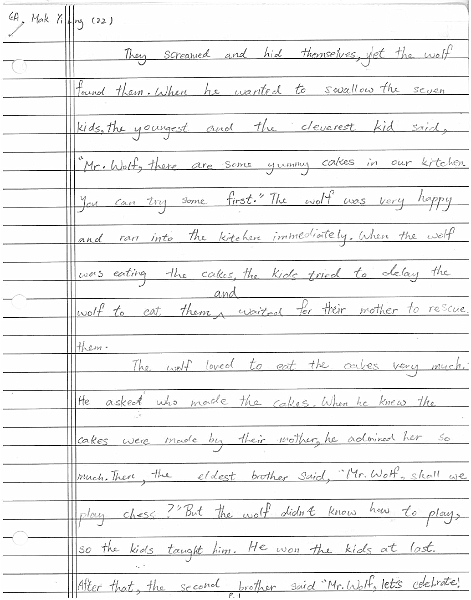 6A, Mak Yi Ling (22)
They screamed and hid themselves, yet the wolf
found them. When he wanted to swallow the seven
kids, the youngest and the cleverest kid said,
"Mr. Wolf, there are some yummy cakes in our kitchen
You can try some first." The wolf was very happy
and ran into the kitchen immediately. When the wolf
was eating the cakes, the kids tried to delay the
and
wolf to eat them, waited for their mother to rescue
them.
The wolf loved to eat the cakes very much.
He asked who made the cakes. When he knew the
cakes were made by their mother, he admired her so
much. Then, the eldest brother said, "Mr. Wolf, shall we
play chess?" But the wolf didn't know how to play,
so the kids taught him. He won the kids at last.
After that, the second brother said "Mr. Wolf, let's celebrate!
P.1